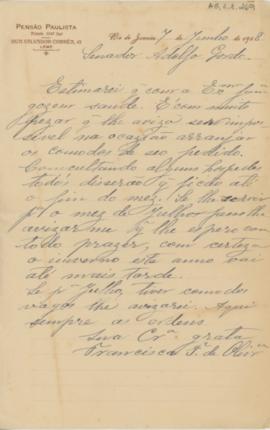 PENSÃO PAULISTA
LEME
Rio de Janeiro 7 de Junho de 1928.
Senador Adolfo Gordo.
Estimarei q' com a Ex.ma fam.
gozem saude. É com muito
pezar q' lhe aviso ser impos-
sivel na ocazião arranjar
os comodos de seo pedido.
Consultando alguns hospedes
todos disserão q' ficão até
o fim do mez. Se lhe servir
p.a o mez de Julho
avizar-me q' lhe espero com
todo prazer, com certeza
o inverno este anno vai
até mais tarde.
Se p.r Julho, tiver comodos
vagos lhe avizarei. Aqui
sempre as ordens
Sua Cr.a grata
Francisca P. de Oliv.ra